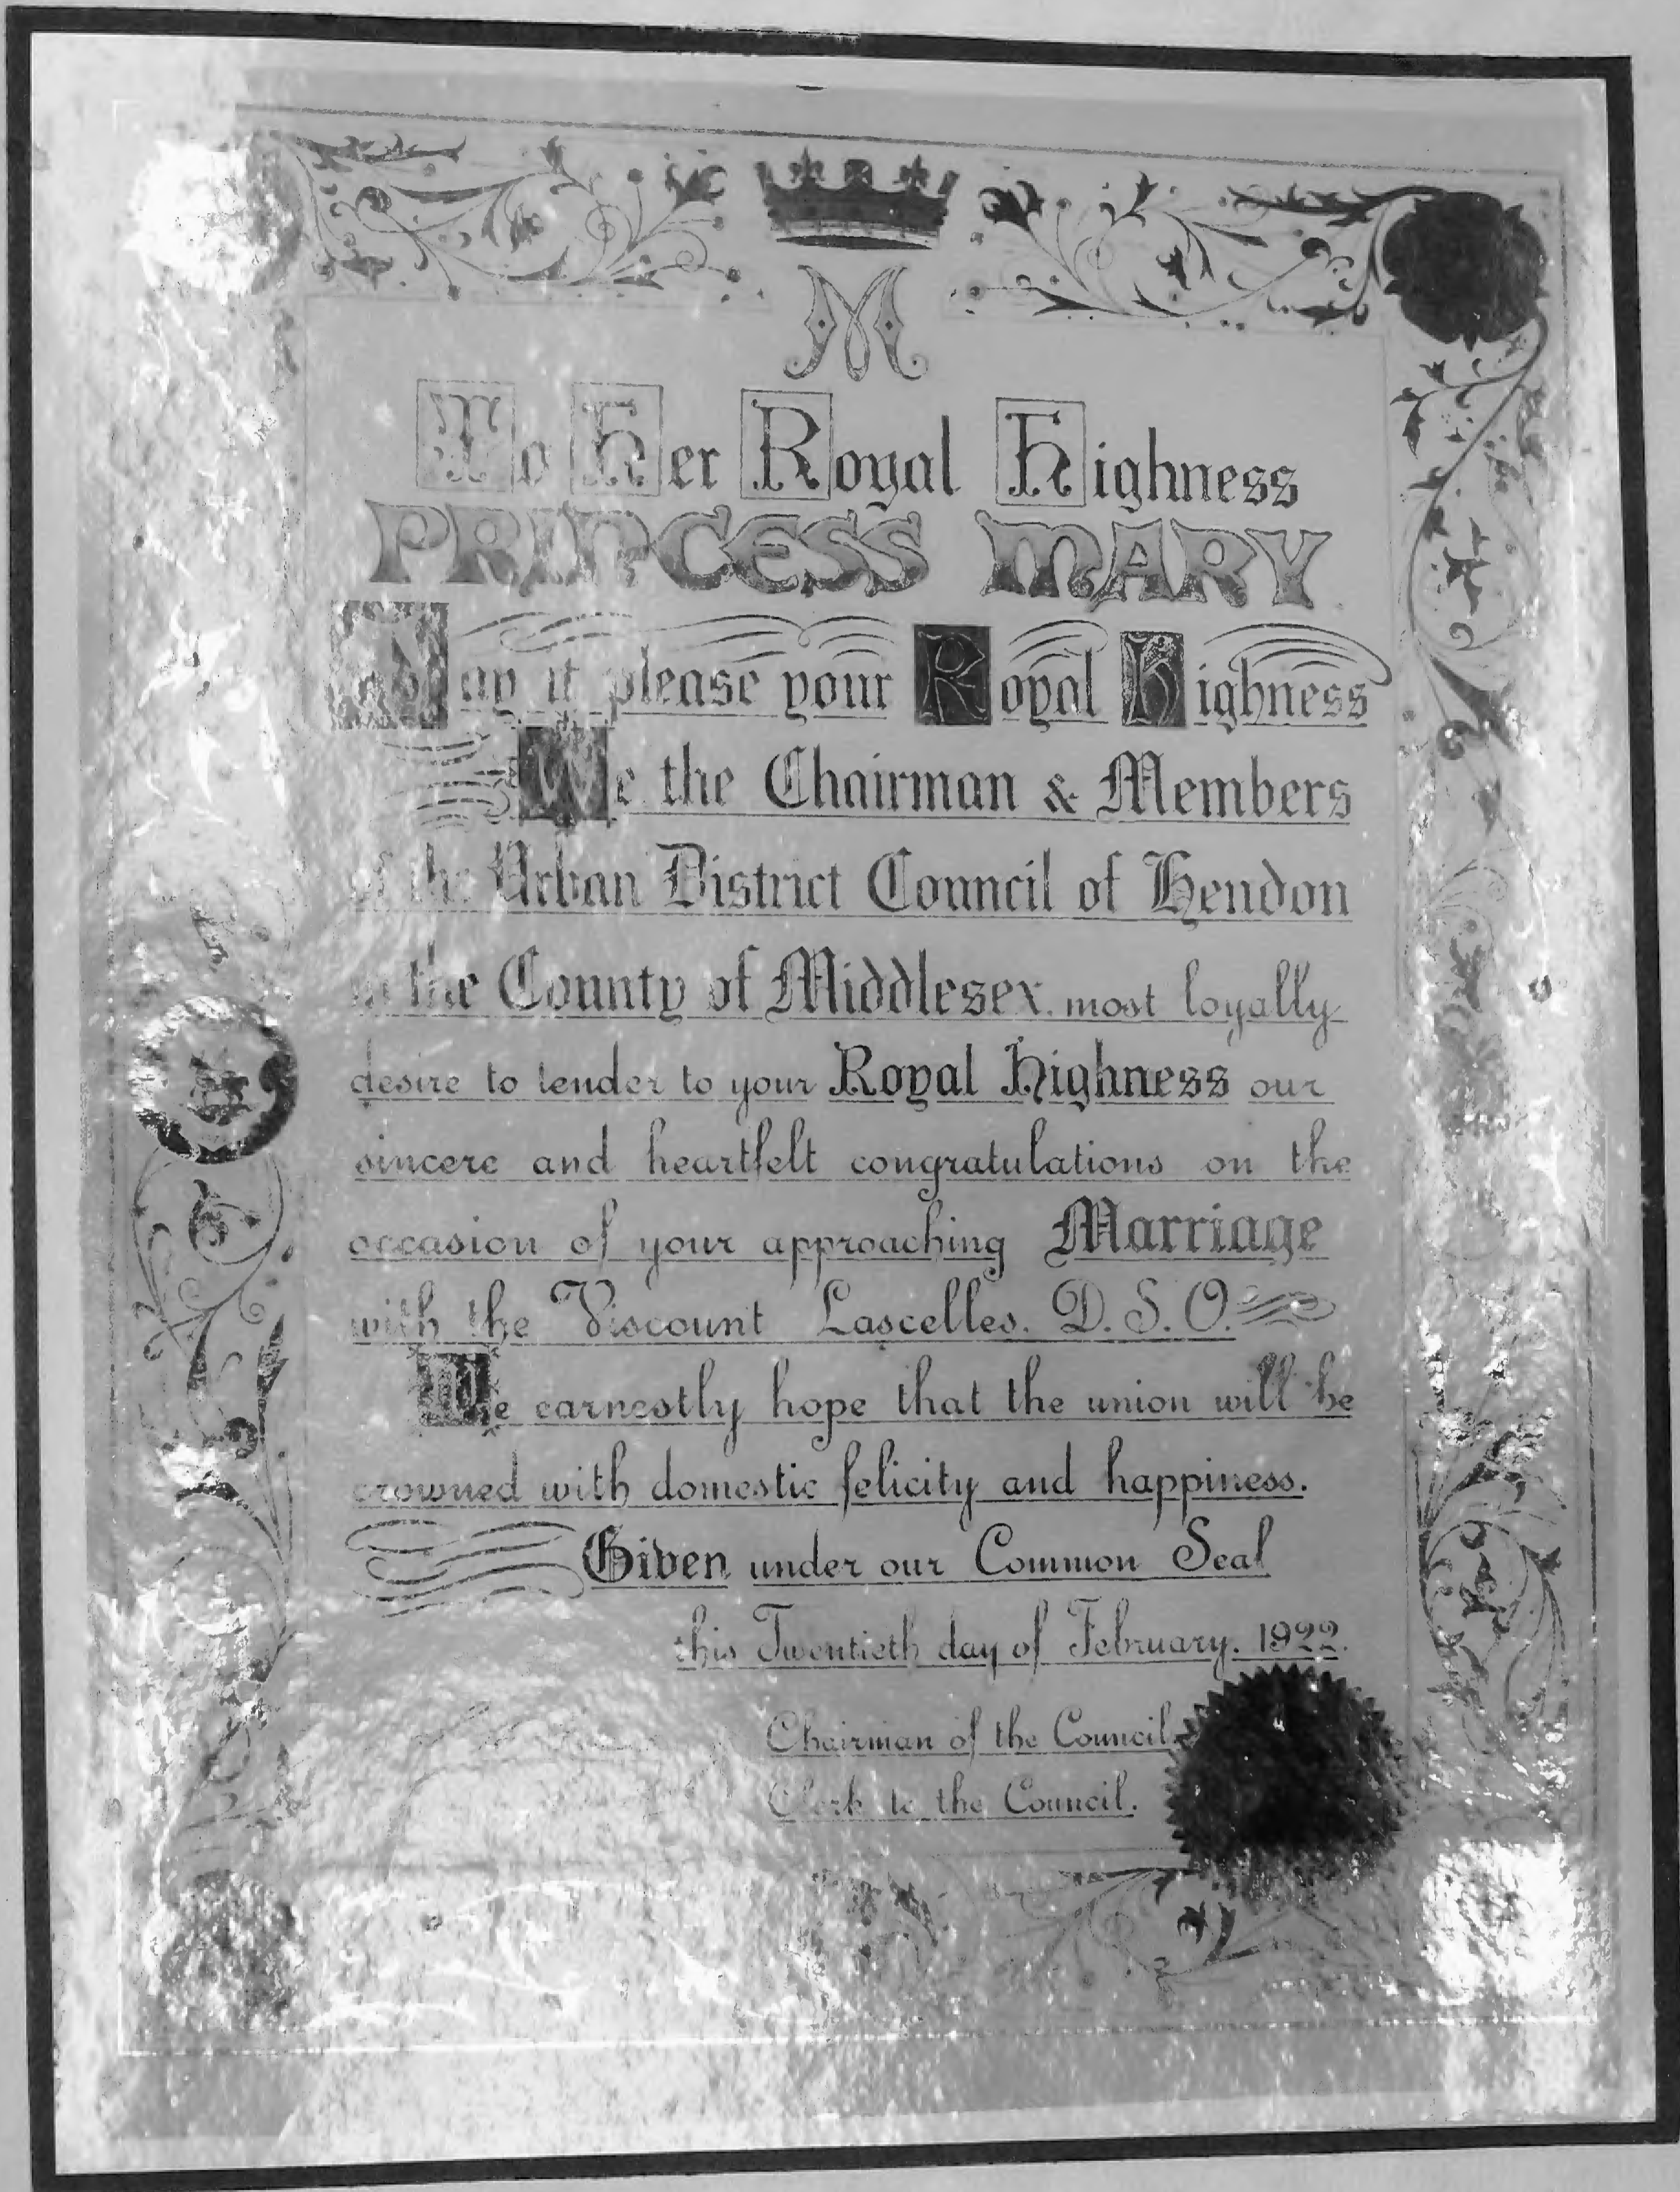 M
To Her Royal Highness
PRINCESS MARY
May it please your Royal Highness
We the Chairman & Members
of the Urban District Council of Hendon
in the County of Middlesex. most loyally
desire to tender to your Royal Highness our
sincere and heartfelt congratulations on the
occasion of your approaching Marriage
with the Viscount Lascelles. D. S. O.
We earnestly hope that the union will be
crowned with domestic felicity and happiness.
Given under our Common Seal
this Twentieth day of February. 1922.
Chairman of the Council.
Clerk to the Council.